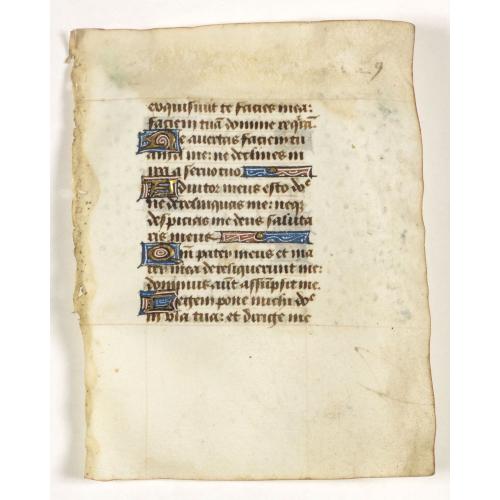 9
exquisivit te facies mea:
faciem tuã domine requirã.
Ne avertas faciem tu
am a me: ne declines in
ira a servo tuo
Adiutor meus esto dñe
ne derelinquas me: neqʒ
despicias me deus saluta
ris meus
Qm̃ pater meus et ma
ter mea dereliquerunt me:
dominus aũt assũpsit me.
Legem pone michi dñe
in via tua: et dirige me